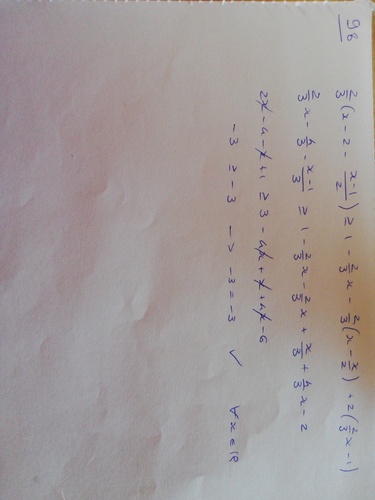 98
2/3 (x - 2 - (x-1)/2) ≥ 1 - 2/3 x - 2/3 (x - x/2) + 2 (2/3 x - 1)
2/3 x - 4/3 - (x-1)/3 ≥ 1 - 2/3 x - 2/3 x + x/3 + 4/3 x - 2
2x - 4 - x + 1 ≥ 3 - 4x + x + 4x - 6
-3 ≥ -3 -> -3 = -3 ✓ ∀x∈ℝ